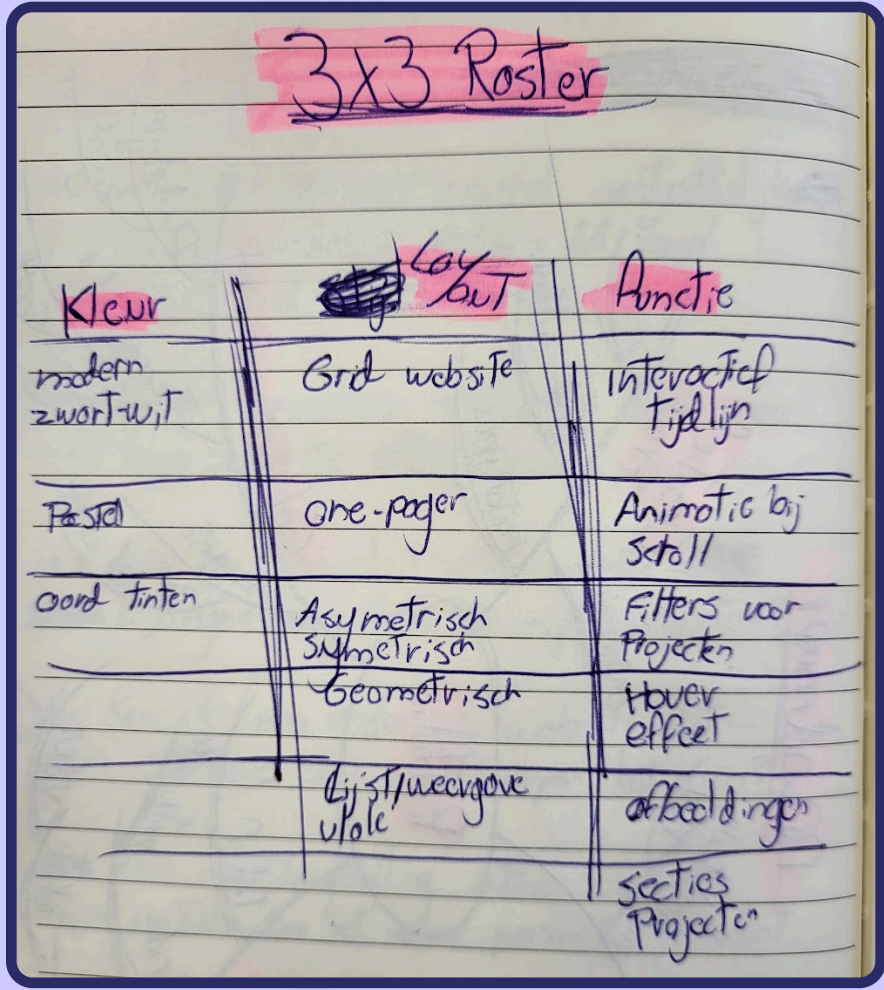 3x3 Roster
Kleur
Lay/out
Functie
modern
zwart-wit
Grid website
interactief
tijdlijn
Pastel
one-pager
Animatie bij
scroll
aard tinten
Asymetrisch
symetrisch
Filters voor
Projecten
Geometrisch
Hover
effect
Lijst/weergave
afbeeldingen
secties
Projecten